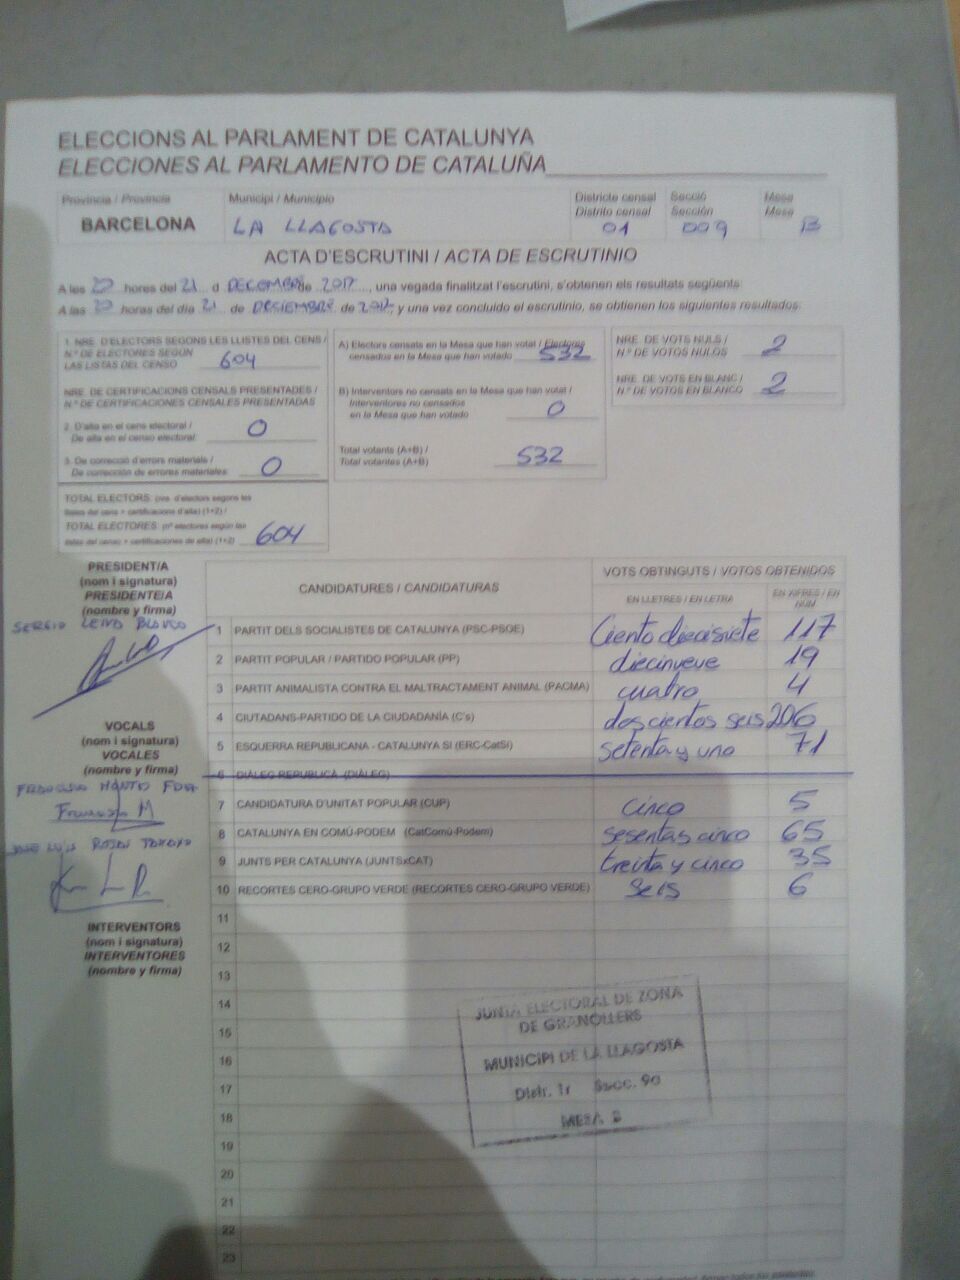 ELECCIONS AL PARLAMENT DE CATALUNYA
ELECCIONES AL PARLAMENTO DE CATALUÑA
Provincia / Provincia
BARCELONA
Municipi / Municipio
LA LLAGOSTA
Districte censal
Distrito censal
01
Secció
Sección
009
Mesa
Mesa
B
ACTA D'ESCRUTINI / ACTA DE ESCRUTINIO
A les 20 hores del 21 d DECEMBRE de 2017, una vegada finalitzat l'escrutini, s'obtenen els resultats següents:
A las 20 horas del día 21 de DECIEMBRE de 2017, y una vez concluido el escrutinio, se obtienen los siguientes resultados:
1. NRE. D'ELECTORS SEGONS LES LLISTES DEL CENS /
N.º DE ELECTORES SEGÚN
LAS LISTAS DEL CENSO 604
NRE. DE CERTIFICACIONS CENSALS PRESENTADES /
N.º DE CERTIFICACIONES CENSALES PRESENTADAS
2. D'alta en el cens electoral /
De alta en el censo electoral 0
3. De correcció d'errors materials /
De corrección de errores materiales 0
TOTAL ELECTORS (nre. d'electors segons les
llistes del cens + certificacions d'alta) (1+2) /
TOTAL ELECTORES (nº electores según las
listas del censo + certificaciones de alta) (1+2) 604
A) Electors censats en la Mesa que han votat / Electores
censados en la Mesa que han votado 532
B) Interventors no censats en la Mesa que han votat /
Interventores no censados
en la Mesa que han votado 0
Total votants (A+B) /
Total votantes (A+B) 532
NRE. DE VOTS NULS /
N.º DE VOTOS NULOS 2
NRE. DE VOTS EN BLANC /
N.º DE VOTOS EN BLANCO 2
PRESIDENT/A
(nom i signatura)
PRESIDENTE/A
(nombre y firma)
SERGIO BLANCO
VOCALS
(nom i signatura)
VOCALES
(nombre y firma)
JOSE LUIS ROJAS
INTERVENTORS
(nom i signatura)
INTERVENTORES
(nombre y firma)
CANDIDATURES / CANDIDATURAS
VOTS OBTINGUTS / VOTOS OBTENIDOS
EN LLETRES / EN LETRA
EN XIFRES / EN NUM
1 PARTIT DELS SOCIALISTES DE CATALUNYA (PSC-PSOE) Ciento diecisiete 117
2 PARTIT POPULAR / PARTIDO POPULAR (PP) diecinueve 19
3 PARTIT ANIMALISTA CONTRA EL MALTRACTAMENT ANIMAL (PACMA) cuatro 4
4 CIUTADANS-PARTIDO DE LA CIUDADANÍA (C's) dos cientos seis 206
5 ESQUERRA REPUBLICANA - CATALUNYA SÍ (ERC-CatSí) setenta y uno 71
6 DIÀLEG REPUBLICÀ (DIÀLEG)
7 CANDIDATURA D'UNITAT POPULAR (CUP) Cinco 5
8 CATALUNYA EN COMÚ-PODEM (CatComú-Podem) sesentas cinco 65
9 JUNTS PER CATALUNYA (JUNTSxCAT) treinta y cinco 35
10 RECORTES CERO-GRUPO VERDE (RECORTES CERO-GRUPO VERDE) Seis 6
11
12
13
14
15
16
17
18
19
20
21
22
23
JUNTA ELECTORAL DE ZONA
DE GRANOLLERS
MUNICIPI DE LA LLAGOSTA
Distr. 1r Secc. 9a
MESA B